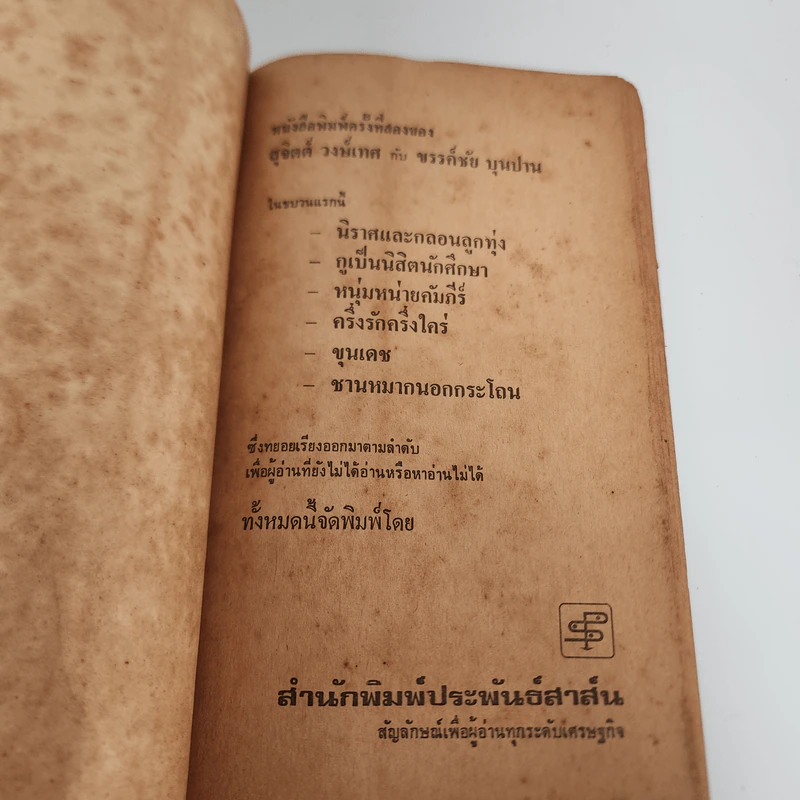 หนังสือพิมพ์ครั้งที่สองของ
สุจิตต์ วงษ์เทศ กับ ขรรค์ชัย บุนปาน
ในขบวนแรกนี้
– นิราศและกลอนลูกทุ่ง
– กูเป็นนิสิตนักศึกษา
– หนุ่มหน่ายคัมภีร์
– ครึ่งรักครึ่งใคร่
– ขุนเดช
– ชานหมากนอกกระโถน
ซึ่งทยอยเรียงออกมาตามลำดับ
เพื่อผู้อ่านที่ยังไม่ได้อ่านหรือหาอ่านไม่ได้
ทั้งหมดนี้จัดพิมพ์โดย
สำนักพิมพ์ประพันธ์สาส์น
สัญลักษณ์เพื่อผู้อ่านทุกระดับเศรษฐกิจ